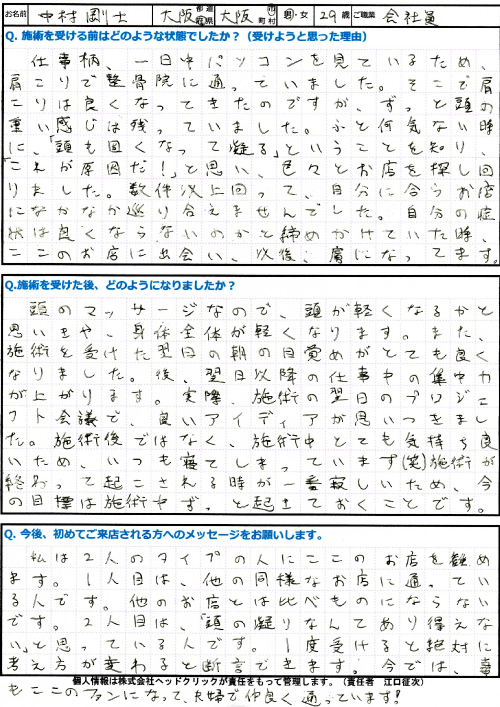 お名前 中村剛士 大阪 都道府県 大阪 市町村 男・女 29歳 ご職業 会社員
Q. 施術を受ける前はどのような状態でしたか？（受けようと思った理由）
仕事柄、一日中パソコンを見ているため、
肩こりで整骨院に通っていました。そこで肩
こりは良くなってきたのですが、ずっと頭の
重い感じは残っていました。ふと何気ない時
に、「頭も固くなって凝る」ということを知り、
「これが原因だ！」と思い、色々とお店を探し回
りました。数件以上回って、自分に合うお店
になかなか巡り合えませんでした。自分の症
状は良くならないのかと諦めかけていた時、
ここのお店に出会い、以後、虜になってます。
Q.施術を受けた後、どのようになりましたか？
頭のマッサージなので、頭が軽くなるかと
思いきや、身体全体が軽くなります。また、
施術を受けた翌日の朝の目覚めがとても良く
なりました。後、翌日以降の仕事中の集中力
が上がります。実際、施術の翌日のプロジェ
クト会議で、良いアイディアが思いつきまし
た。施術後ではなく、施術中とても気持ち良
いため、いつも寝てしまっています(笑)施術が
終わって起こされる時が一番寂しいため、今
の目標は施術中ずっと起きておくことです。
Q. 今後、初めてご来店される方へのメッセージをお願いします。
私は2人のタイプの人にここのお店を勧め
ます。1人目は、他の同様なお店に通ってい
る人です。他のお店とは比べものにならない
です。2人目は、「頭の凝りなんてあり得えな
い」と思っている人です。1度受けると絶対に
考え方が変わると断言できます。今では、妻
個人情報は株式会社ヘッドクリックが責任をもって管理します。（責任者 江口征次）
もここのファンになって、夫婦で仲良く通っています!